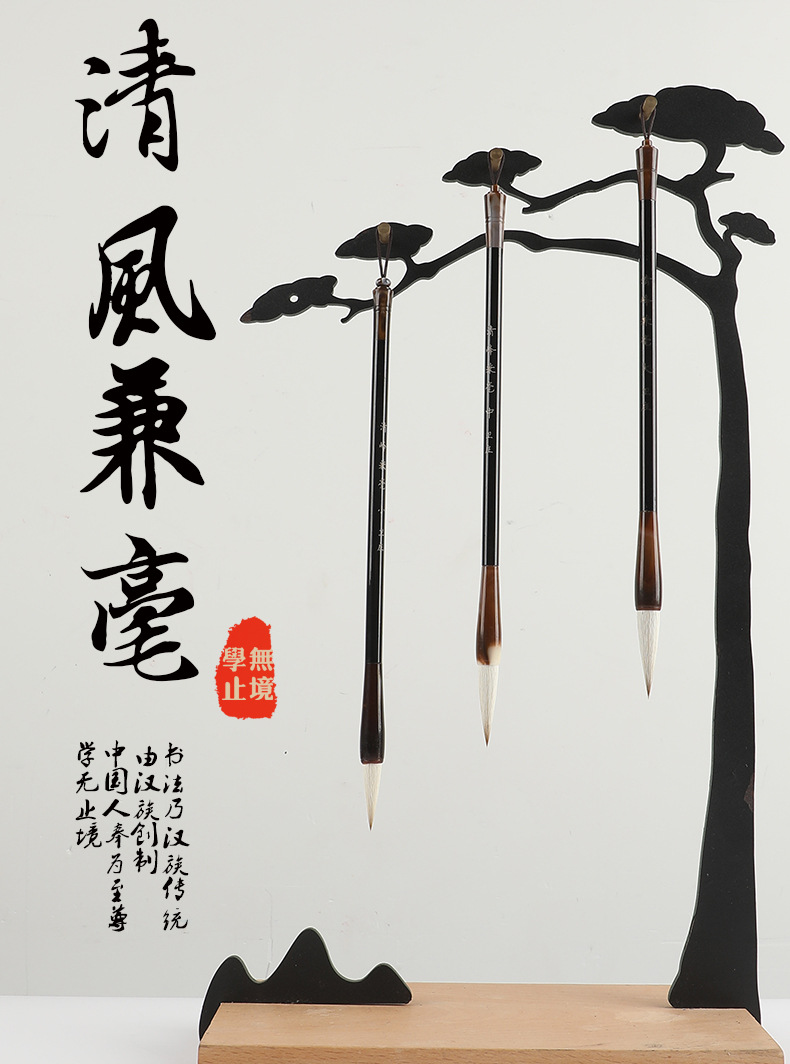 清風兼毫
無境
學止
书法乃汉族传统
由汉族创制
中国人奉为至尊
学无止境